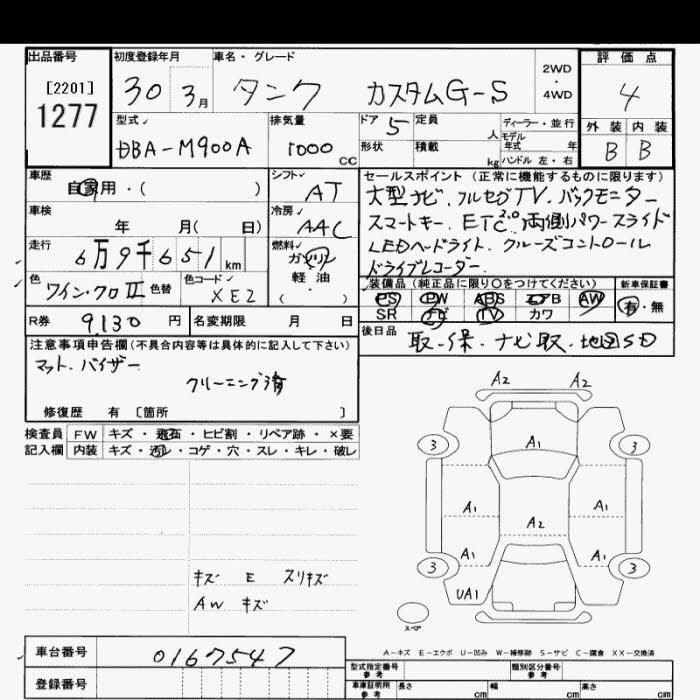 出品番号 初度登録年月 車名・グレード 2WD・4WD 評価点
[2201]
1277
30 3月 タンク カスタムG-S 4
型式 排気量 ドア 5 定員 人 ディーラー・並行 外装 内装
モデル年式 年
DBA-M900A 1000 CC 形状 積載 kg ハンドル 左・右 B B
車歴 シフト セールスポイント (正常に機能するものに限ります)
自家用・( ) AT 大型ナビ、フルセグTV、バックモニター
車検 冷房 スマートキー、ETC2.0 両側パワースライド
年 月( 日) AAC LEDヘッドライト、クルーズコントロール
走行 燃料 ドライブレコーダー、
6万9千651km ガソリン
軽油
( )
色 色替 色コード 装備品(純正品に限り○をつけてください) 新車保証書
ワイン・クロⅡ XE2 PS PW ABS エアB AW 有・無
SR ナビ TV カワ
R券 9,130 円 名変期限 月 日 後日品 取・保・ナビ取・地図SD
注意事項申告欄(不具合内容等は具体的に記入して下さい)
マット、バイザー
クリーニング済
修復歴 有 [箇所 ]
検査員 FW キズ・飛石・ヒビ割・リペア跡・×要
記入欄 内装 キズ・汚レ・コゲ・穴・スレ・キレ・破レ
A2 A2
3 A1 3
A1 A2 A1
A1 A1
3 3
UA1
スペア
キズ E スリキズ
AW キズ
A-キズ E-エクボ U-凹み W-補修跡 S-サビ C-腐食 XX-交換済
車台番号 0167547
型式指定番号参考 類別区分番号参考
登録番号 車庫証明用参考 長さ cm 幅 cm 高さ cm